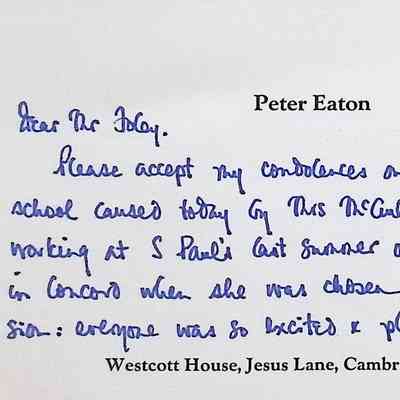 Peter Eaton
Dear Mr Foley.
Please accept my condolences on
school caused today by Mrs McAul
working at S Paul's last summer
in Concord when she was chosen
sion: everyone was so excited & pl
Westcott House, Jesus Lane, Cambr